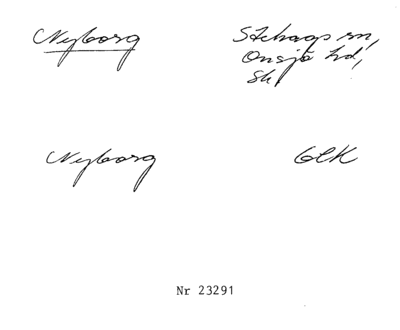 Nyborg
Stehags sn,
Onsjö hd,
Sk
Nyborg
GEK
Nr 23291